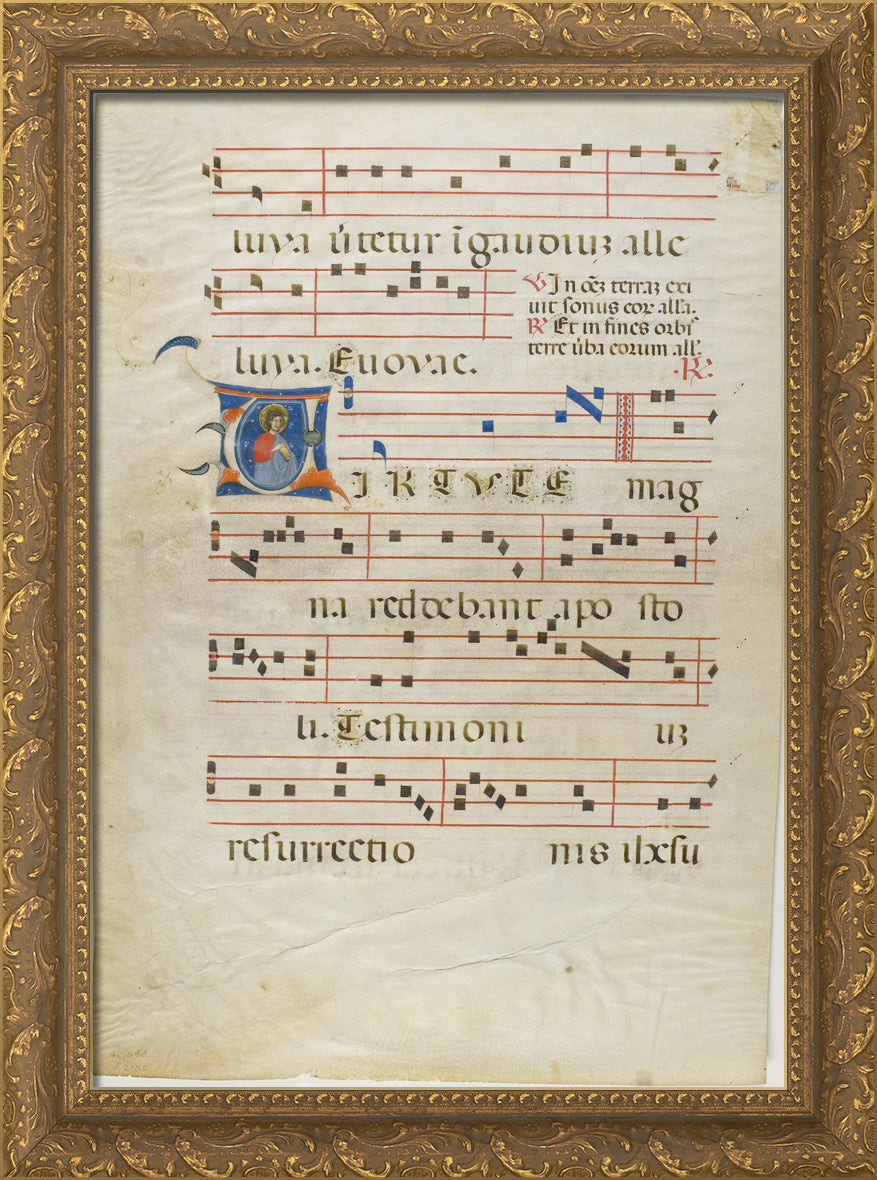 luya ūtetur ī gaudiuʒ alle
luya. Euovae.
V In oēʒ terraʒ exi
uit sonus eoꝝ alla.
R Et in fines orbis
terre ūba eorum all.
R.
VIRTVTE mag
na reddebant apo sto
li. Testimoni uʒ
resurrectio nis ihesu